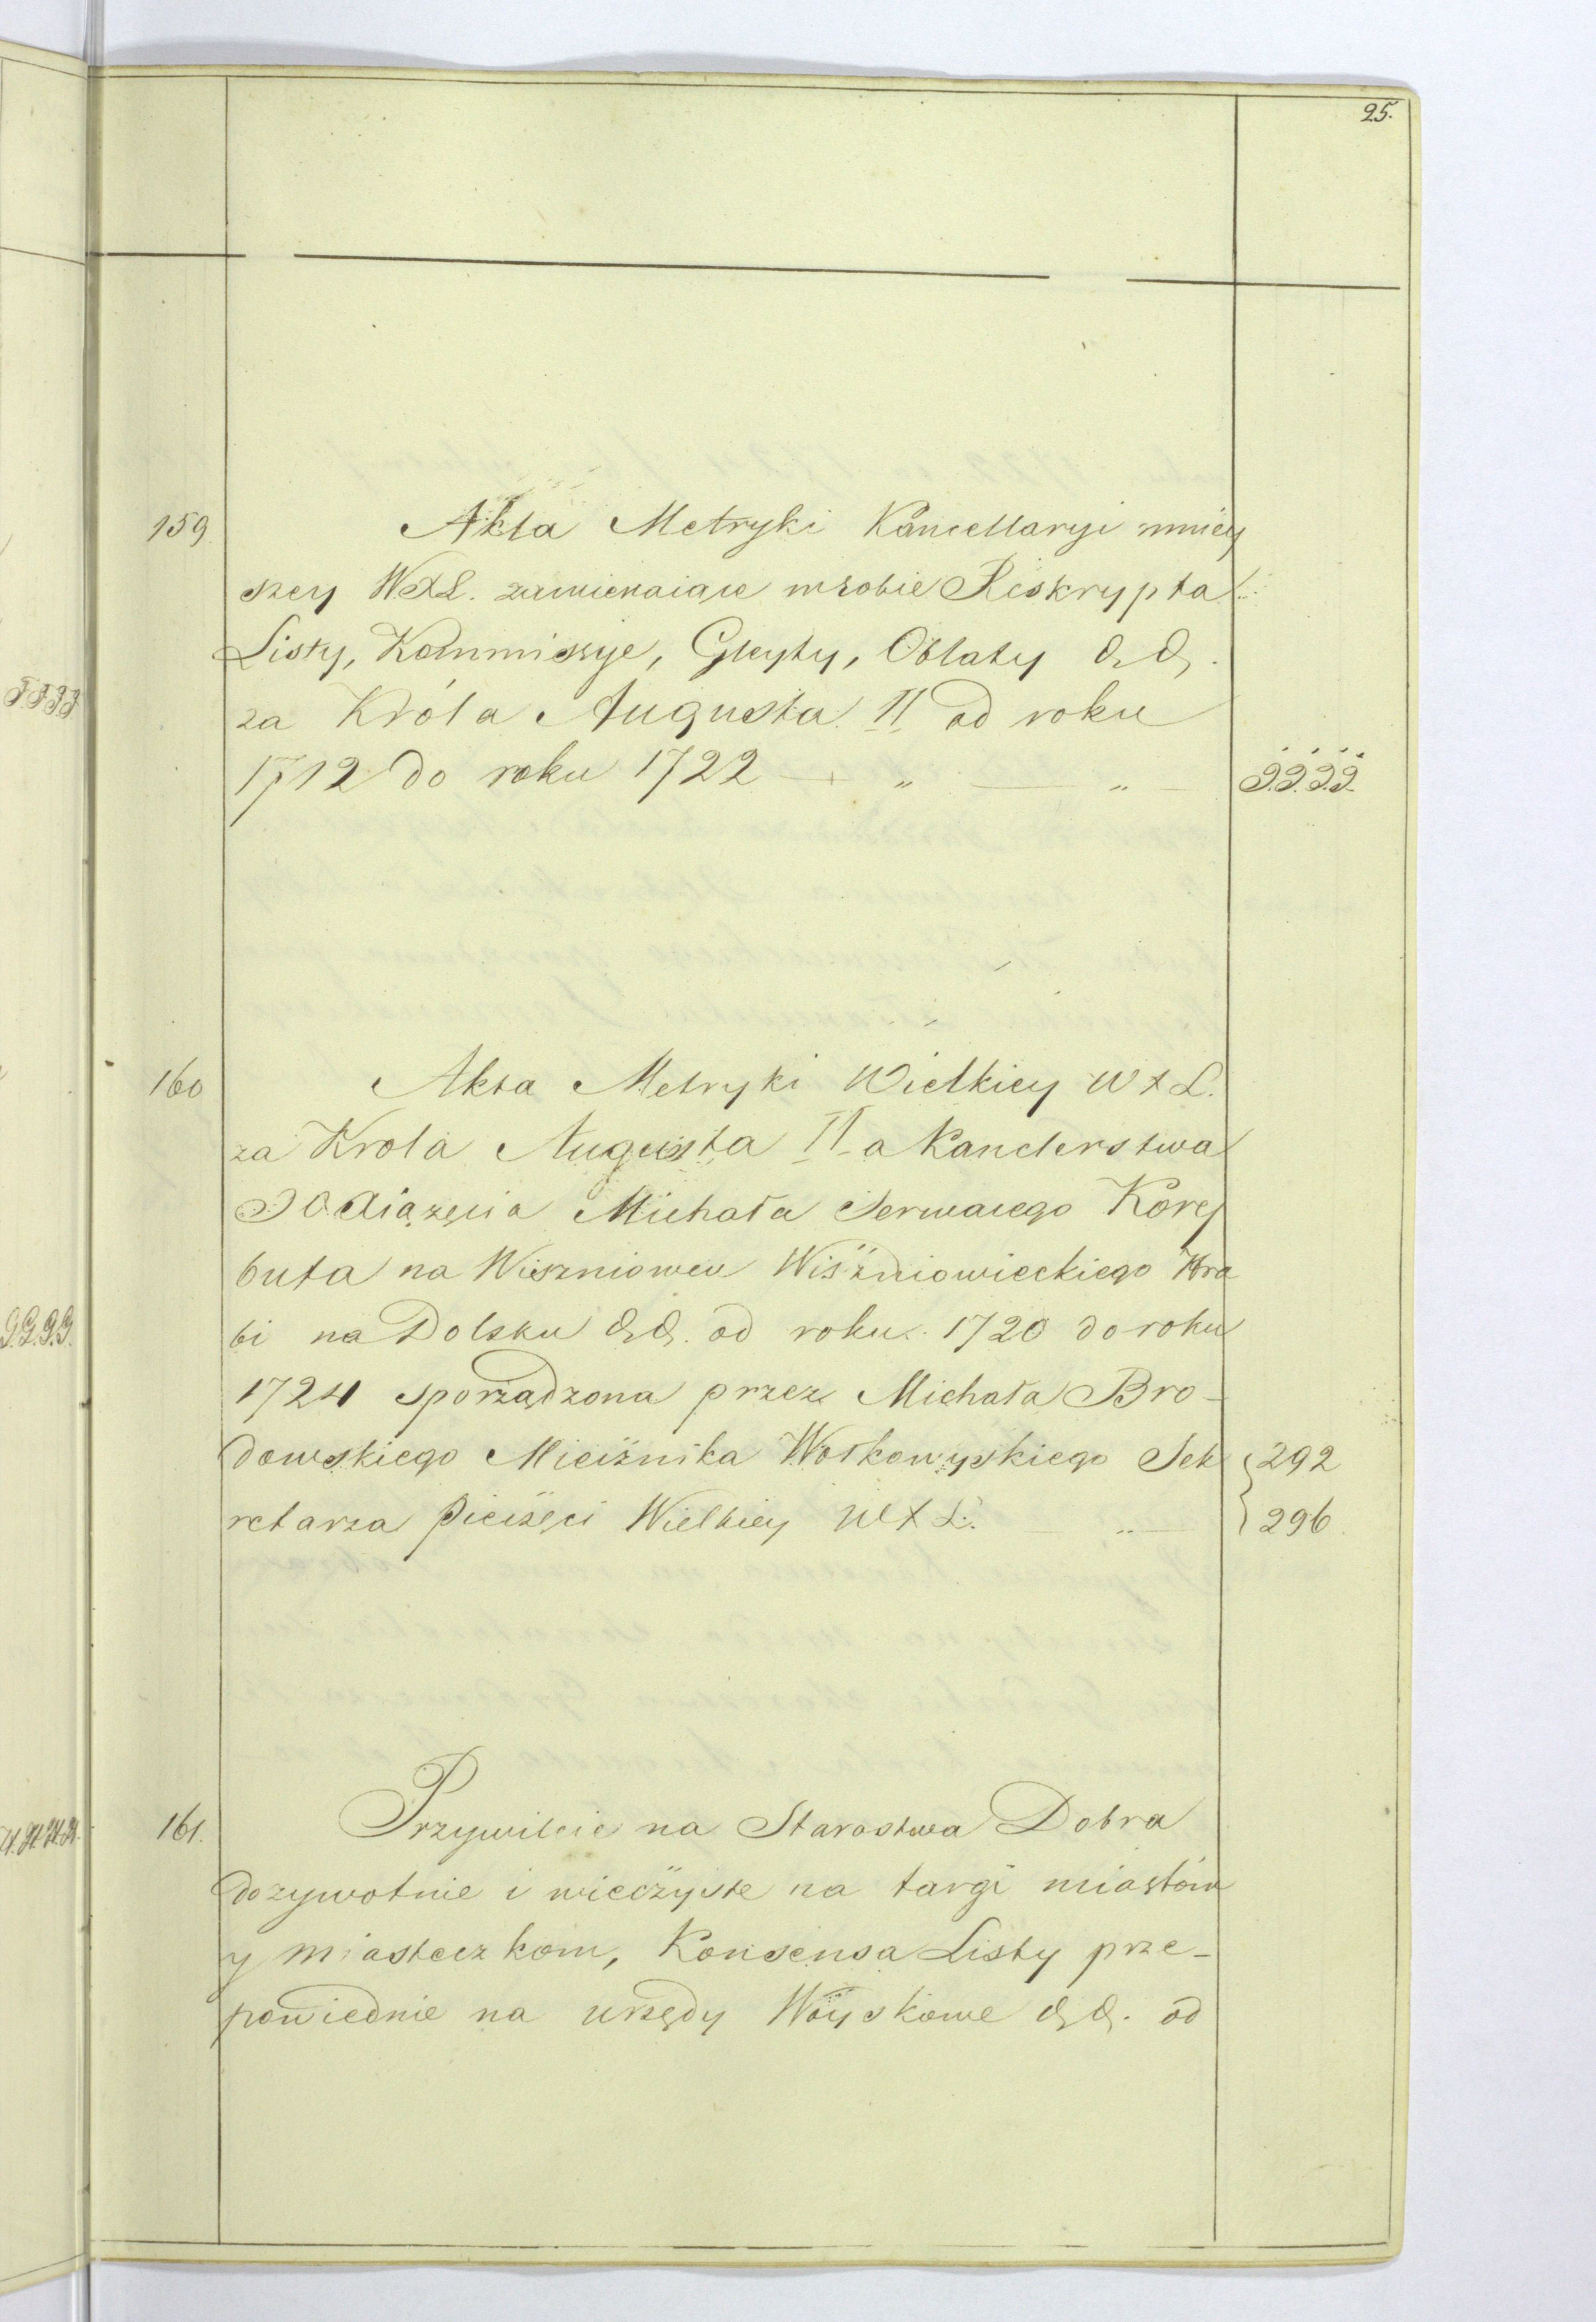 25.
159. Akta Metryki Kancellaryi mniey
szey WXL. zawieraiące w sobie Reskrypta
Listy, Kommissye, Gleyty, Oblaty & & .
za Króla Augusta II od roku
1712 do roku 1722 — „ — „ — J.J.J.J.
160 Akta Metryki Wielkiey W X L.
za Krola Augusta II a Kanclerstwa
JO Xiążęcia Michała Serwacego Kory
buta na Wiszniowcu Wiśzniowieckiego Hra
bi na Dolsku & &. od roku 1720 do roku
1724 sporządzona przez Michała Bro-
dowskiego Miecżnika Wołkowyskiego Sek 292
retarza Pieczęci Wielkiey W X L. „ — 296
161. Przywileie na Starostwa Dobra
dozywotnie i wieczyste na targi miastom
y miasteczkom, Konsensa Listy prze-
powiednie na urzędy Woyskowe & &. od
F.F.F.F.
G.G.G.G.
H.H.H.H.